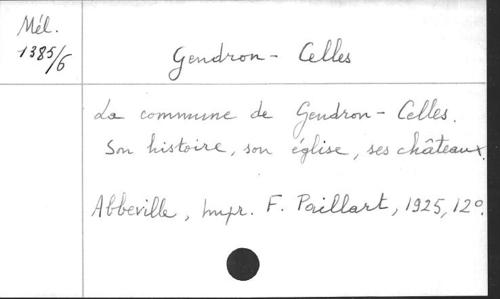 Mél.
1385/6
Gendron - Celles
La commune de Gendron - Celles.
Son histoire, son église, ses châteaux.
Abbeville, Impr. F. Paillart, 1925, 12º.